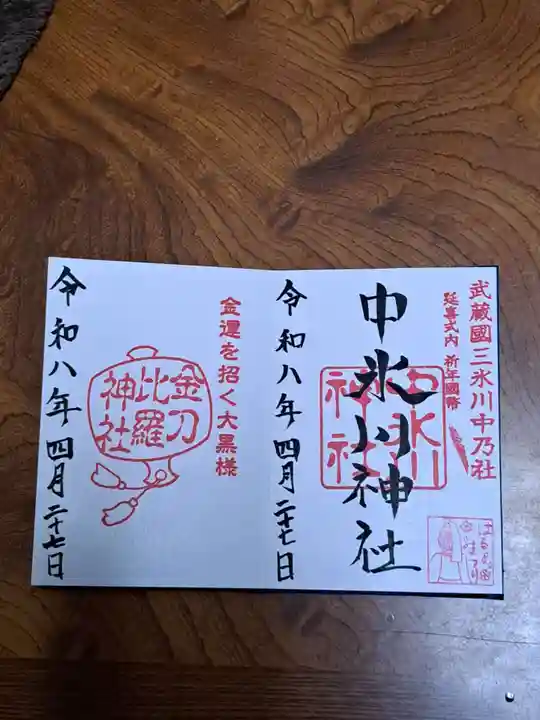 武蔵國三氷川中乃社
延喜式内 祈年國幣
中氷川神社
中氷川神社
令和八年四月二十七日
金運を招く大黒様
金刀比羅神社
令和八年四月二十七日